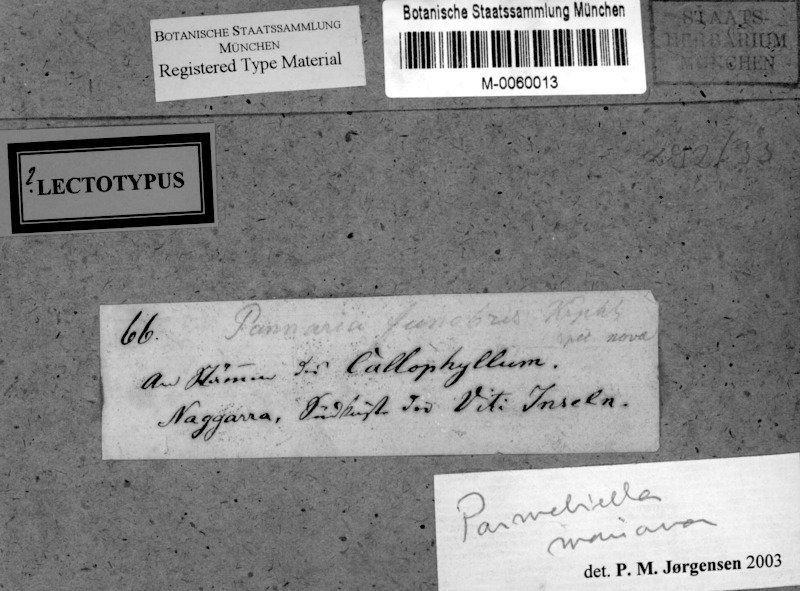 BOTANISCHE STAATSSAMMLUNG
MÜNCHEN
Registered Type Material
Botanische Staatssammlung München
M-0060013
STAATS-
HERBARIUM
MÜNCHEN
? LECTOTYPUS
66.
Pannaria funebris Krphbr
spec nova
An Stämmen des Callophyllum.
Naggarra, Südküste der Viti Inseln.
Parmeliella
mariana
det. P. M. Jørgensen 2003